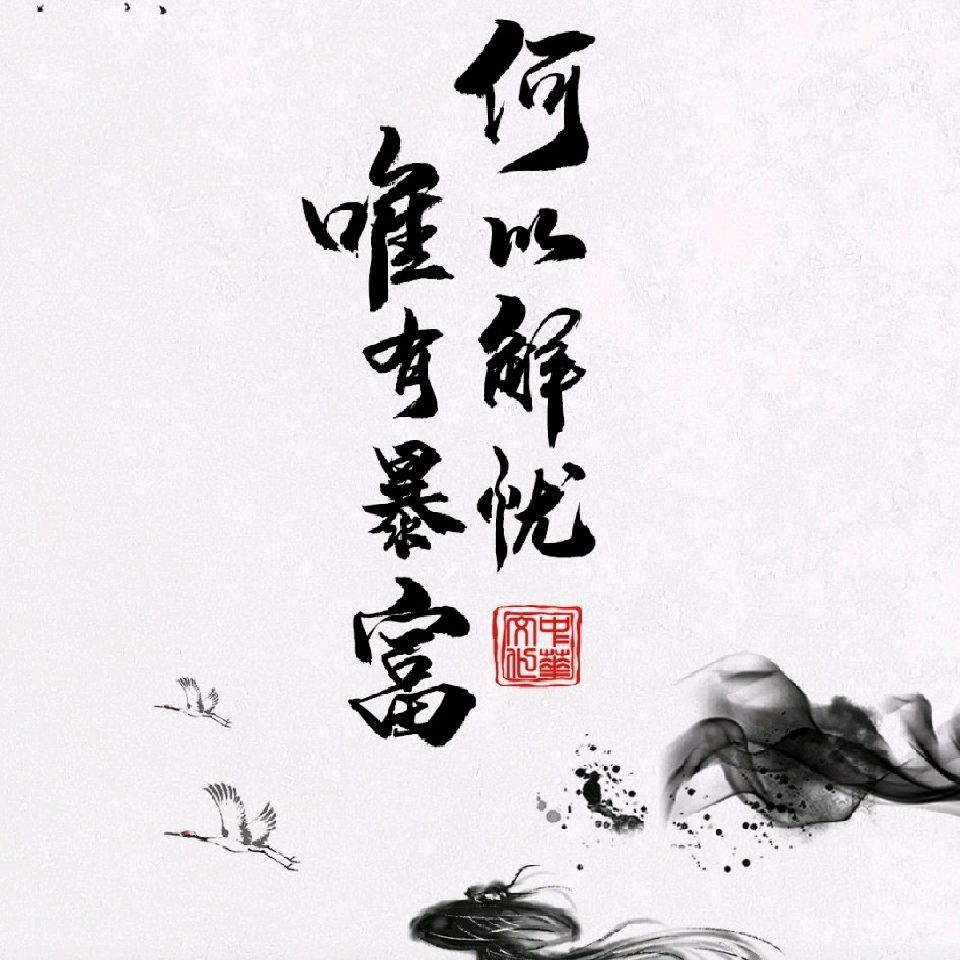 何以解忧
唯有暴富
中華文化